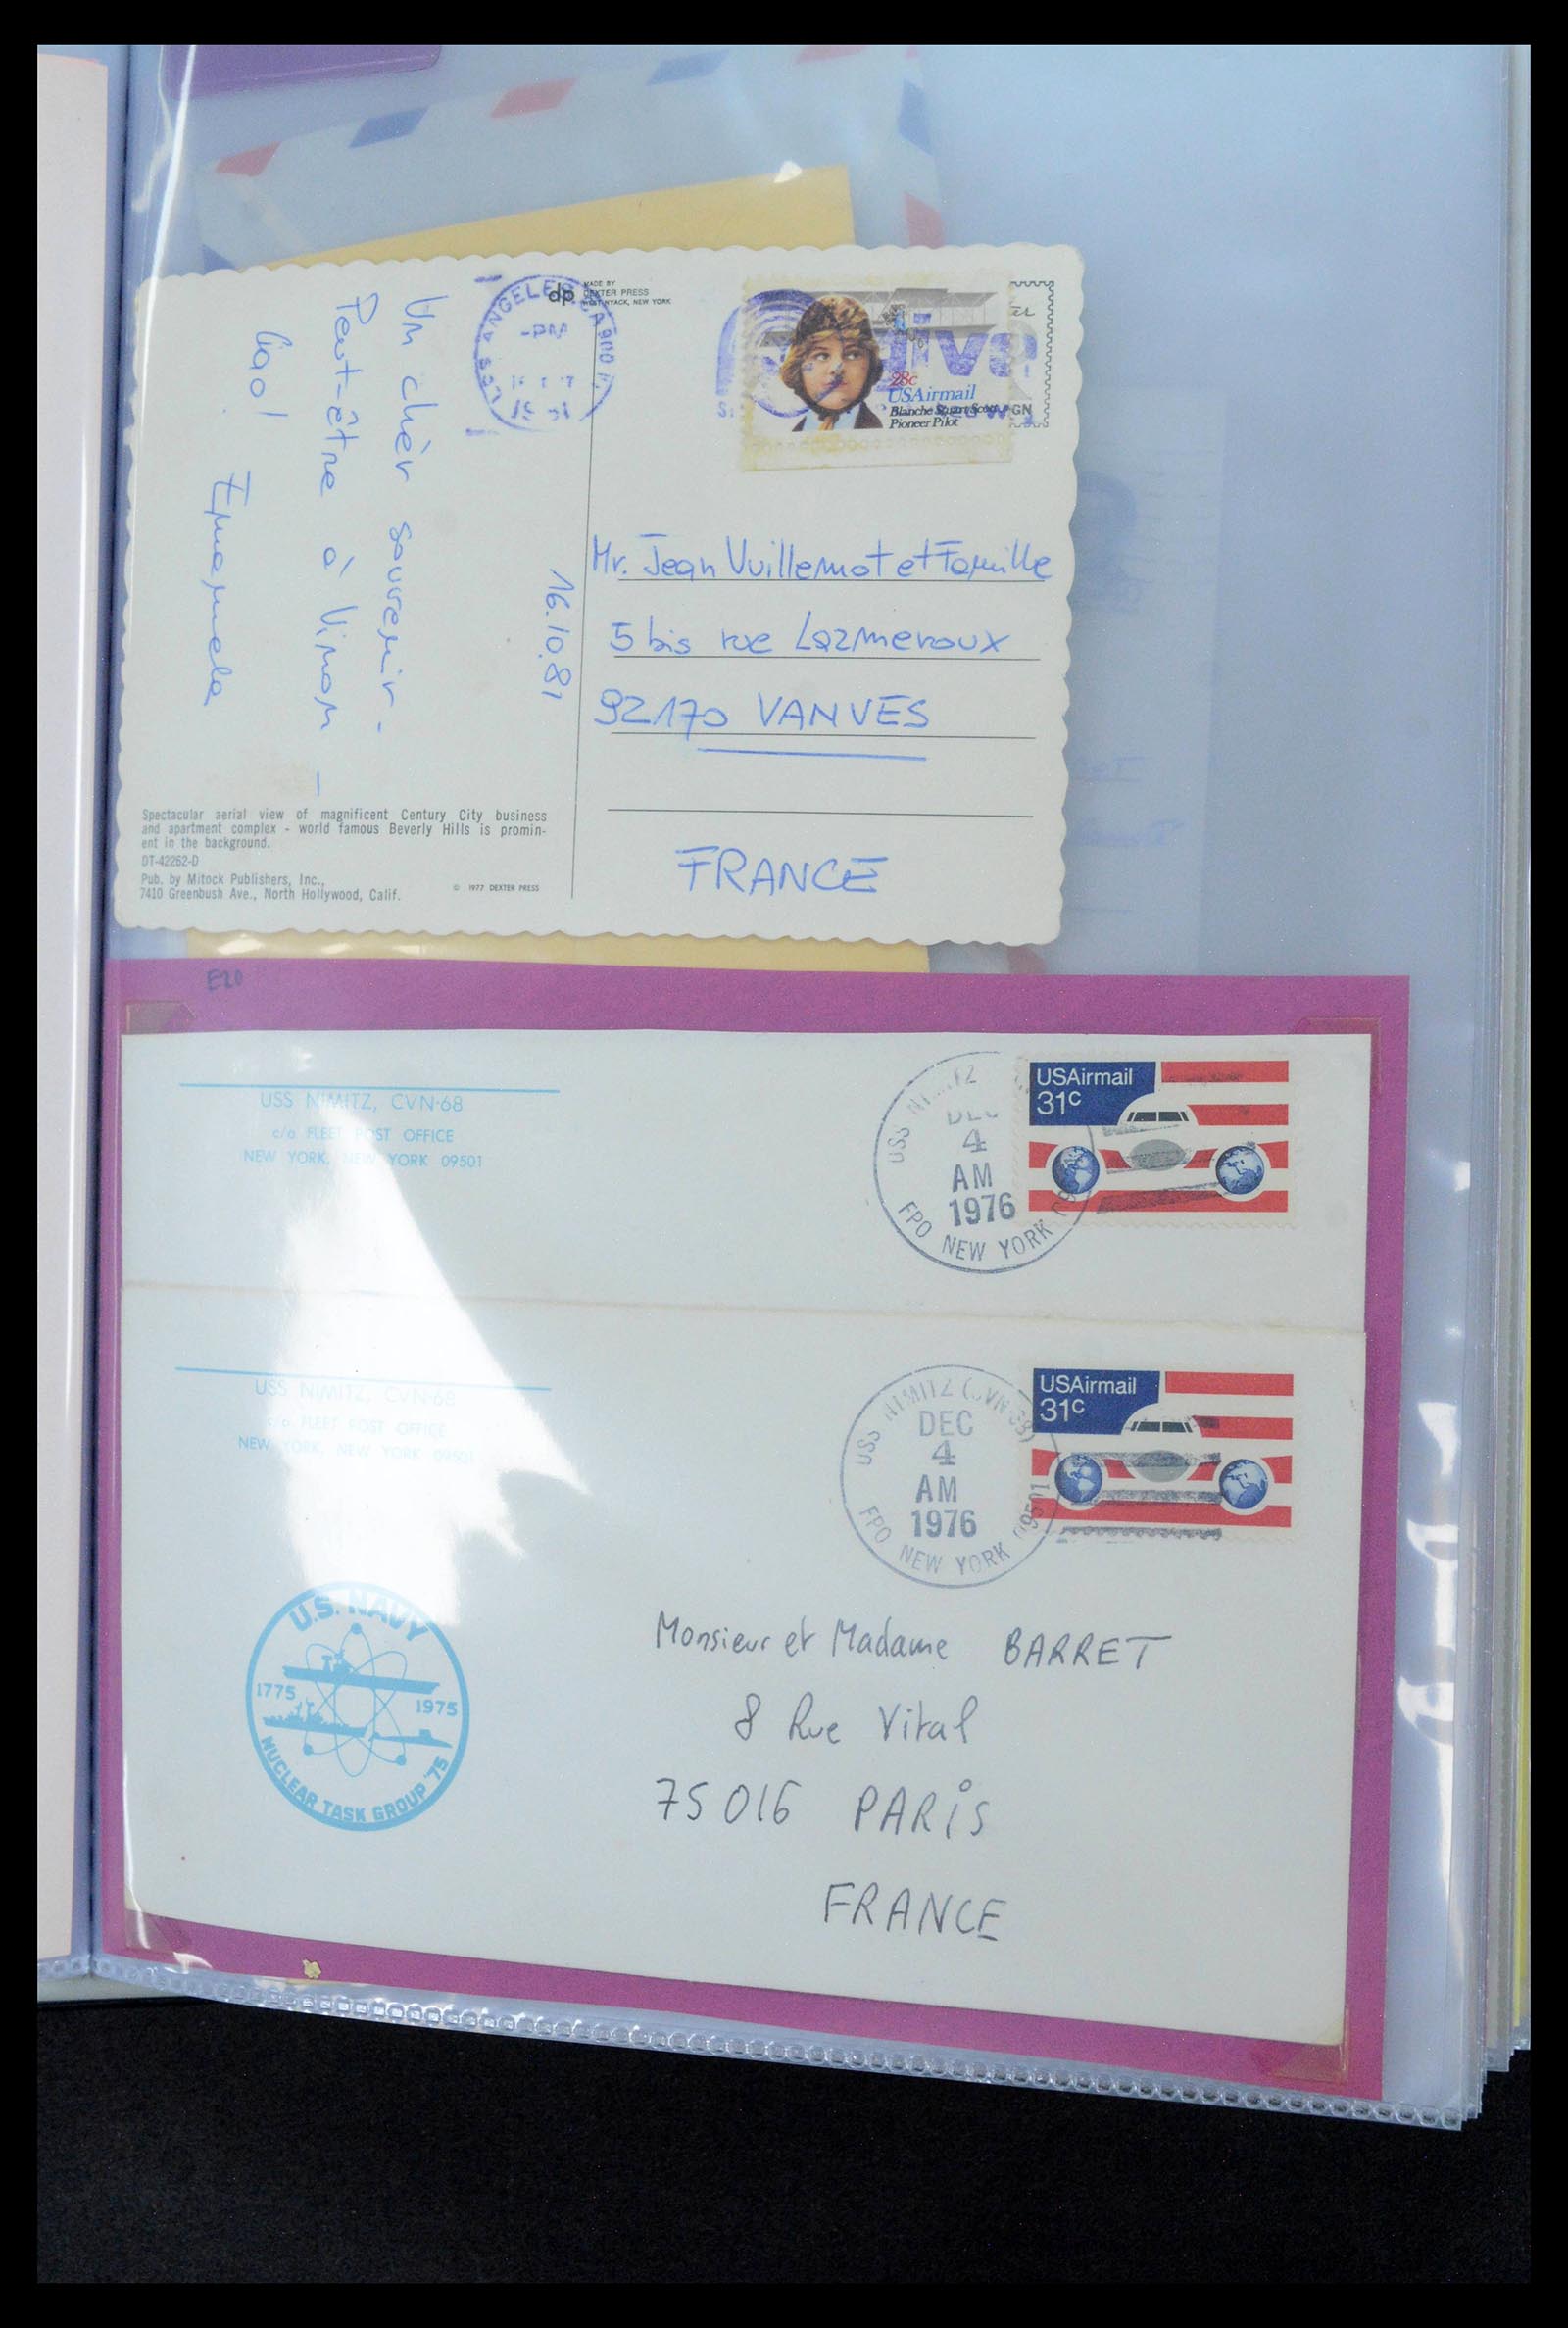 dp
MADE BY
DEXTER PRESS
WEST NYACK, NEW YORK
LOS ANGELES, CA
PM
28c
USAirmail
Blanche Stuart Scott
Pioneer Pilot
Un chèr souvenir.
Peut-être à Vinon -
Ciao!
Emanuela
16.10.81
Mr. Jean Vuillemot et Famille
5 bis rue Lazmeroux
92170 VANVES
FRANCE
Spectacular aerial view of magnificent Century City business
and apartment complex - world famous Beverly Hills is promin-
ent in the background.
DT-42262-D
Pub. by Mitock Publishers, Inc.,
7410 Greenbush Ave., North Hollywood, Calif.
© 1977 DEXTER PRESS
E20
USS NIMITZ, CVN-68
c/o FLEET POST OFFICE
NEW YORK, NEW YORK 09501
USS NIMITZ
DEC
4
AM
1976
FPO NEW YORK
USAirmail
31c
USS NIMITZ, CVN-68
c/o FLEET POST OFFICE
NEW YORK, NEW YORK 09501
USS NIMITZ (CVN-68)
DEC
4
AM
1976
FPO NEW YORK 09501
USAirmail
31c
U.S. NAVY
1775 1975
NUCLEAR TASK GROUP '75
Monsieur et Madame BARRET
8 Rue Vital
75016 PARIS
FRANCE